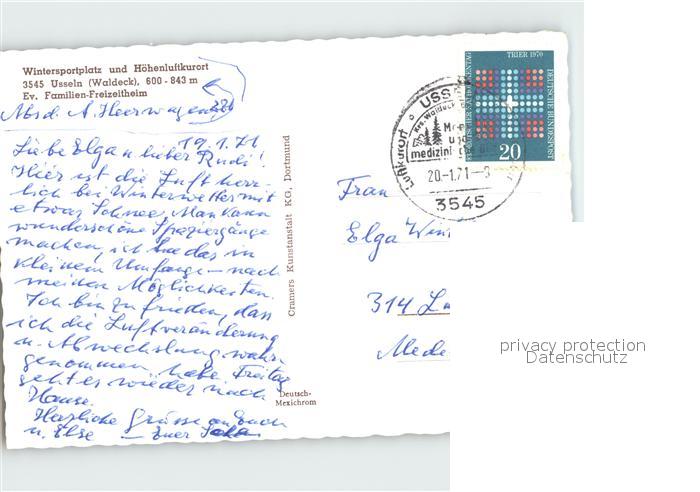 Wintersportplatz und Höhenluftkurort
3545 Usseln (Waldeck), 600 - 843 m
Ev. Familien-Freizeitheim
Absd. A. Heerwagen
19.1.71
Liebe Elga u. lieber Rudi!
Hier ist die Luft herr-
lich bei Winterwetter mit
etwas Schnee. Man kann
wunderschöne Spaziergänge
machen, ich tue das in
kleinem Umfange - nach
meinen Möglichkeiten.
Ich bin zufrieden, dass
ich die Luftveränderung
u. Abwechslung wahr-
genommen habe. Freitag
geht es wieder nach
Hause.
Herzliche Grüsse an Euch
u. Else - Euer
Cramers Kunstanstalt KG, Dortmund
Deutsch-
Mexichrom
TRIER 1970
DEUTSCHER KATHOLIKENTAG
DEUTSCHE BUNDESPOST
20
USS
Luftkurort
Krs. Waldeck
medizini
20.-1.71-8
3545
Frau
Elga
314
privacy protection
Datenschutz